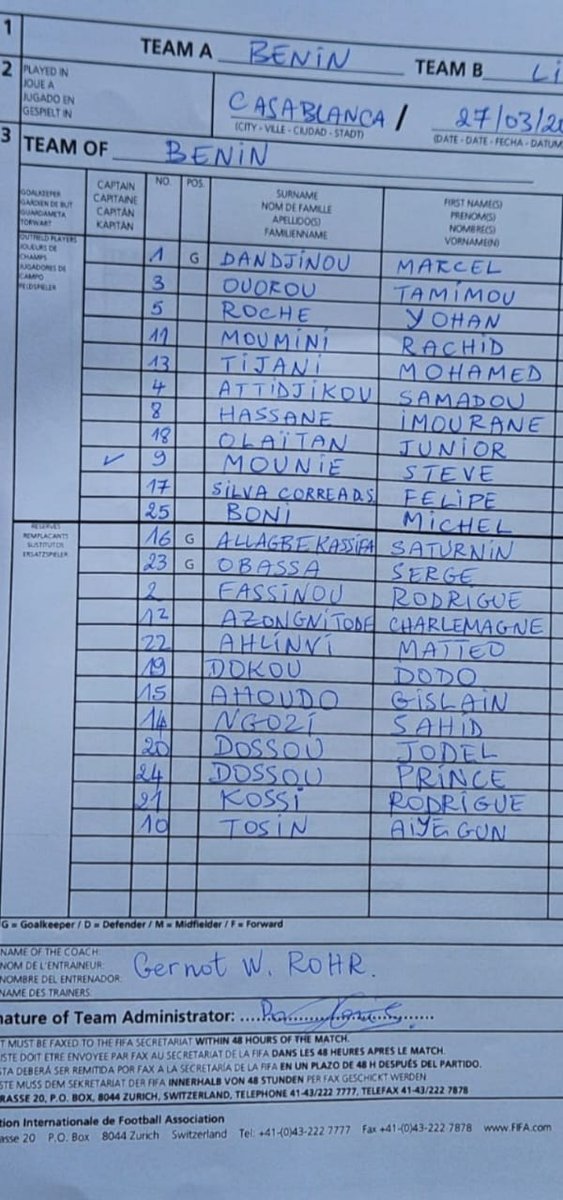 1 TEAM A BENIN TEAM B Li
2 PLAYED IN
JOUE A
JUGADO EN
GESPIELT IN
CASABLANCA / 27/03/20
(CITY - VILLE - CIUDAD - STADT) (DATE - DATE - FECHA - DATUM
3 TEAM OF BENIN
GOALKEEPER
GARDIEN DE BUT
GUARDAMETA
TORWART
CAPTAIN
CAPITAINE
CAPITÁN
KAPITÄN
NO.
POS.
SURNAME
NOM DE FAMILLE
APELLIDO(S)
FAMILIENNAME
FIRST NAME(S)
PRENOM(S)
NOMBRE(S)
VORNAME(N)
OUTFIELD PLAYERS
JOUEURS DE
CHAMPS
JUGADORES DE
CAMPO
FELDSPIELER
1 G DANDJINOU MARCEL
3 OUOROU TAMIMOU
5 ROCHE YOHAN
11 MOUMINI RACHID
13 TIJANI MOHAMED
4 ATTIDJIKOU SAMADOU
8 HASSANE IMOURANE
18 OLAÏTAN JUNIOR
✓ 9 MOUNIE STEVE
17 SILVA CORREADS FELIPE
25 BONI MICHEL
RESERVES
REMPLACANTS
SUSTITUTOS
ERSATZSPIELER
16 G ALLAGBE KASSIFA SATURNIN
23 G OBASSA SERGE
2 FASSINOU RODRIGUE
12 AZONGNITODE CHARLEMAGNE
22 AHLINVI MATTEO
19 DOKOU DODO
15 AHOUDO GISLAIN
14 NGOZI SAHID
20 DOSSOU JODEL
24 DOSSOU PRINCE
21 KOSSI RODRIGUE
10 TOSIN AIYEGUN
G = Goalkeeper / D = Defender / M = Midfielder / F = Forward
NAME OF THE COACH:
NOM DE L'ENTRAINEUR:
NOMBRE DEL ENTRENADOR:
NAME DES TRAINERS
Gernot W. ROHR.
nature of Team Administrator:
T MUST BE FAXED TO THE FIFA SECRETARIAT WITHIN 48 HOURS OF THE MATCH.
ISTE DOIT ETRE ENVOYEE PAR FAX AU SECRETARIAT DE LA FIFA DANS LES 48 HEURES APRES LE MATCH.
STA DEBERÁ SER REMITIDA POR FAX A LA SECRETARÍA DE LA FIFA EN UN PLAZO DE 48 H DESPUÉS DEL PARTIDO.
STE MUSS DEM SEKRETARIAT DER FIFA INNERHALB VON 48 STUNDEN PER FAX GESCHICKT WERDEN
RASSE 20, P.O. BOX, 8044 ZURICH, SWITZERLAND, TELEPHONE 41-43/222 7777, TELEFAX 41-43/222 7878
tion Internationale de Football Association
asse 20 P.O. Box 8044 Zurich Switzerland Tel: +41-(0)43-222 7777 Fax +41-(0)43-222 7878 www.FIFA.com